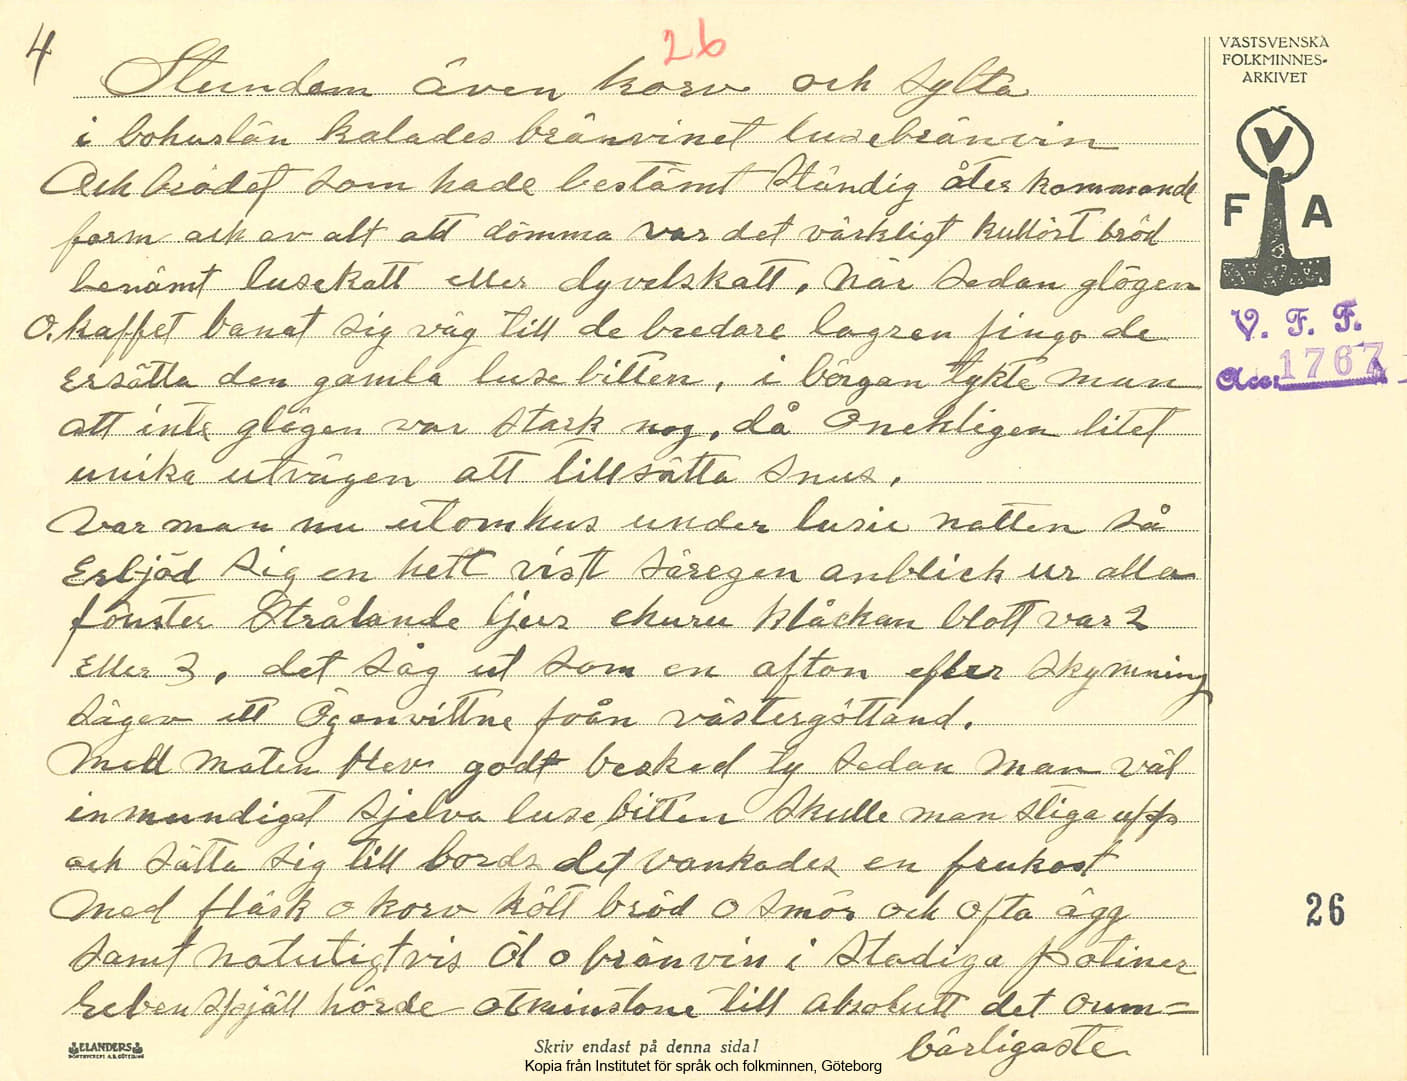 4
26
Stundom även korv och sylta
i bohuslän kalades bränvinet lusebränvin
Och brödet som hade bestämt ständig åter kommande
form och av alt att dömma var det värkligt kultört bröd
benämt lusekatt eller dyvelskatt, när sedan glögen
o. kaffet banat sig väg till de bredare lagren fingo de
ersätta den gamla lusebitten, i börgan tykte man
att inte glögen var stark nog, då onekligen litet
unika utvägen att tillsätta snus.
Var man nu utomhus under lusie natten så
Erbjöd sig en hett visst säregen anblick ur alla
fönster strålande ljus churu klåckan blott var 2
eller 3, det såg ut som en afton efter skymning
säger ett Ögonvittne från västergöttand.
Med maten blev godt besked ty sedan man väl
inmundigat sjelva lusebitten skulle man stiga upp
och sätta sig till bords det vankades en frukost
Med fläsk o korv kött bröd o smör och ofta ägg
samt naturligtvis Öl o bränvin i stadiga
hörde åtminstone till absolutt det oum=
bärligaste
VÄSTSVENSKA
FOLKMINNES-
ARKIVET
V
F A
V. F. F.
Acc: 1767
26
ELANDERS
BOKTRYCKERI A.B. GÖTEBORG
Skriv endast på denna sida!
Kopia från Institutet för språk och folkminnen, Göteborg